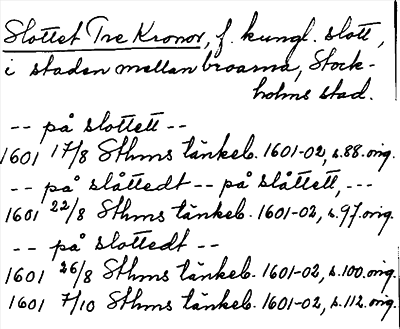 Slottet Tre Kronor, f. kungl. slott,
i staden mellan broarna, Stock-
holms stad.
-- på slottett --
1601 17/8 Sthms tänkeb. 1601-02, s.88. orig.
-- på slåttedt -- på slåttett, ---
1601 22/8 Sthms tänkeb. 1601-02, s.97. orig.
-- på slottedt --
1601 26/8 Sthms tänkeb. 1601-02, s.100. orig.
1601 7/10 Sthms tänkeb. 1601-02, s.112. orig.